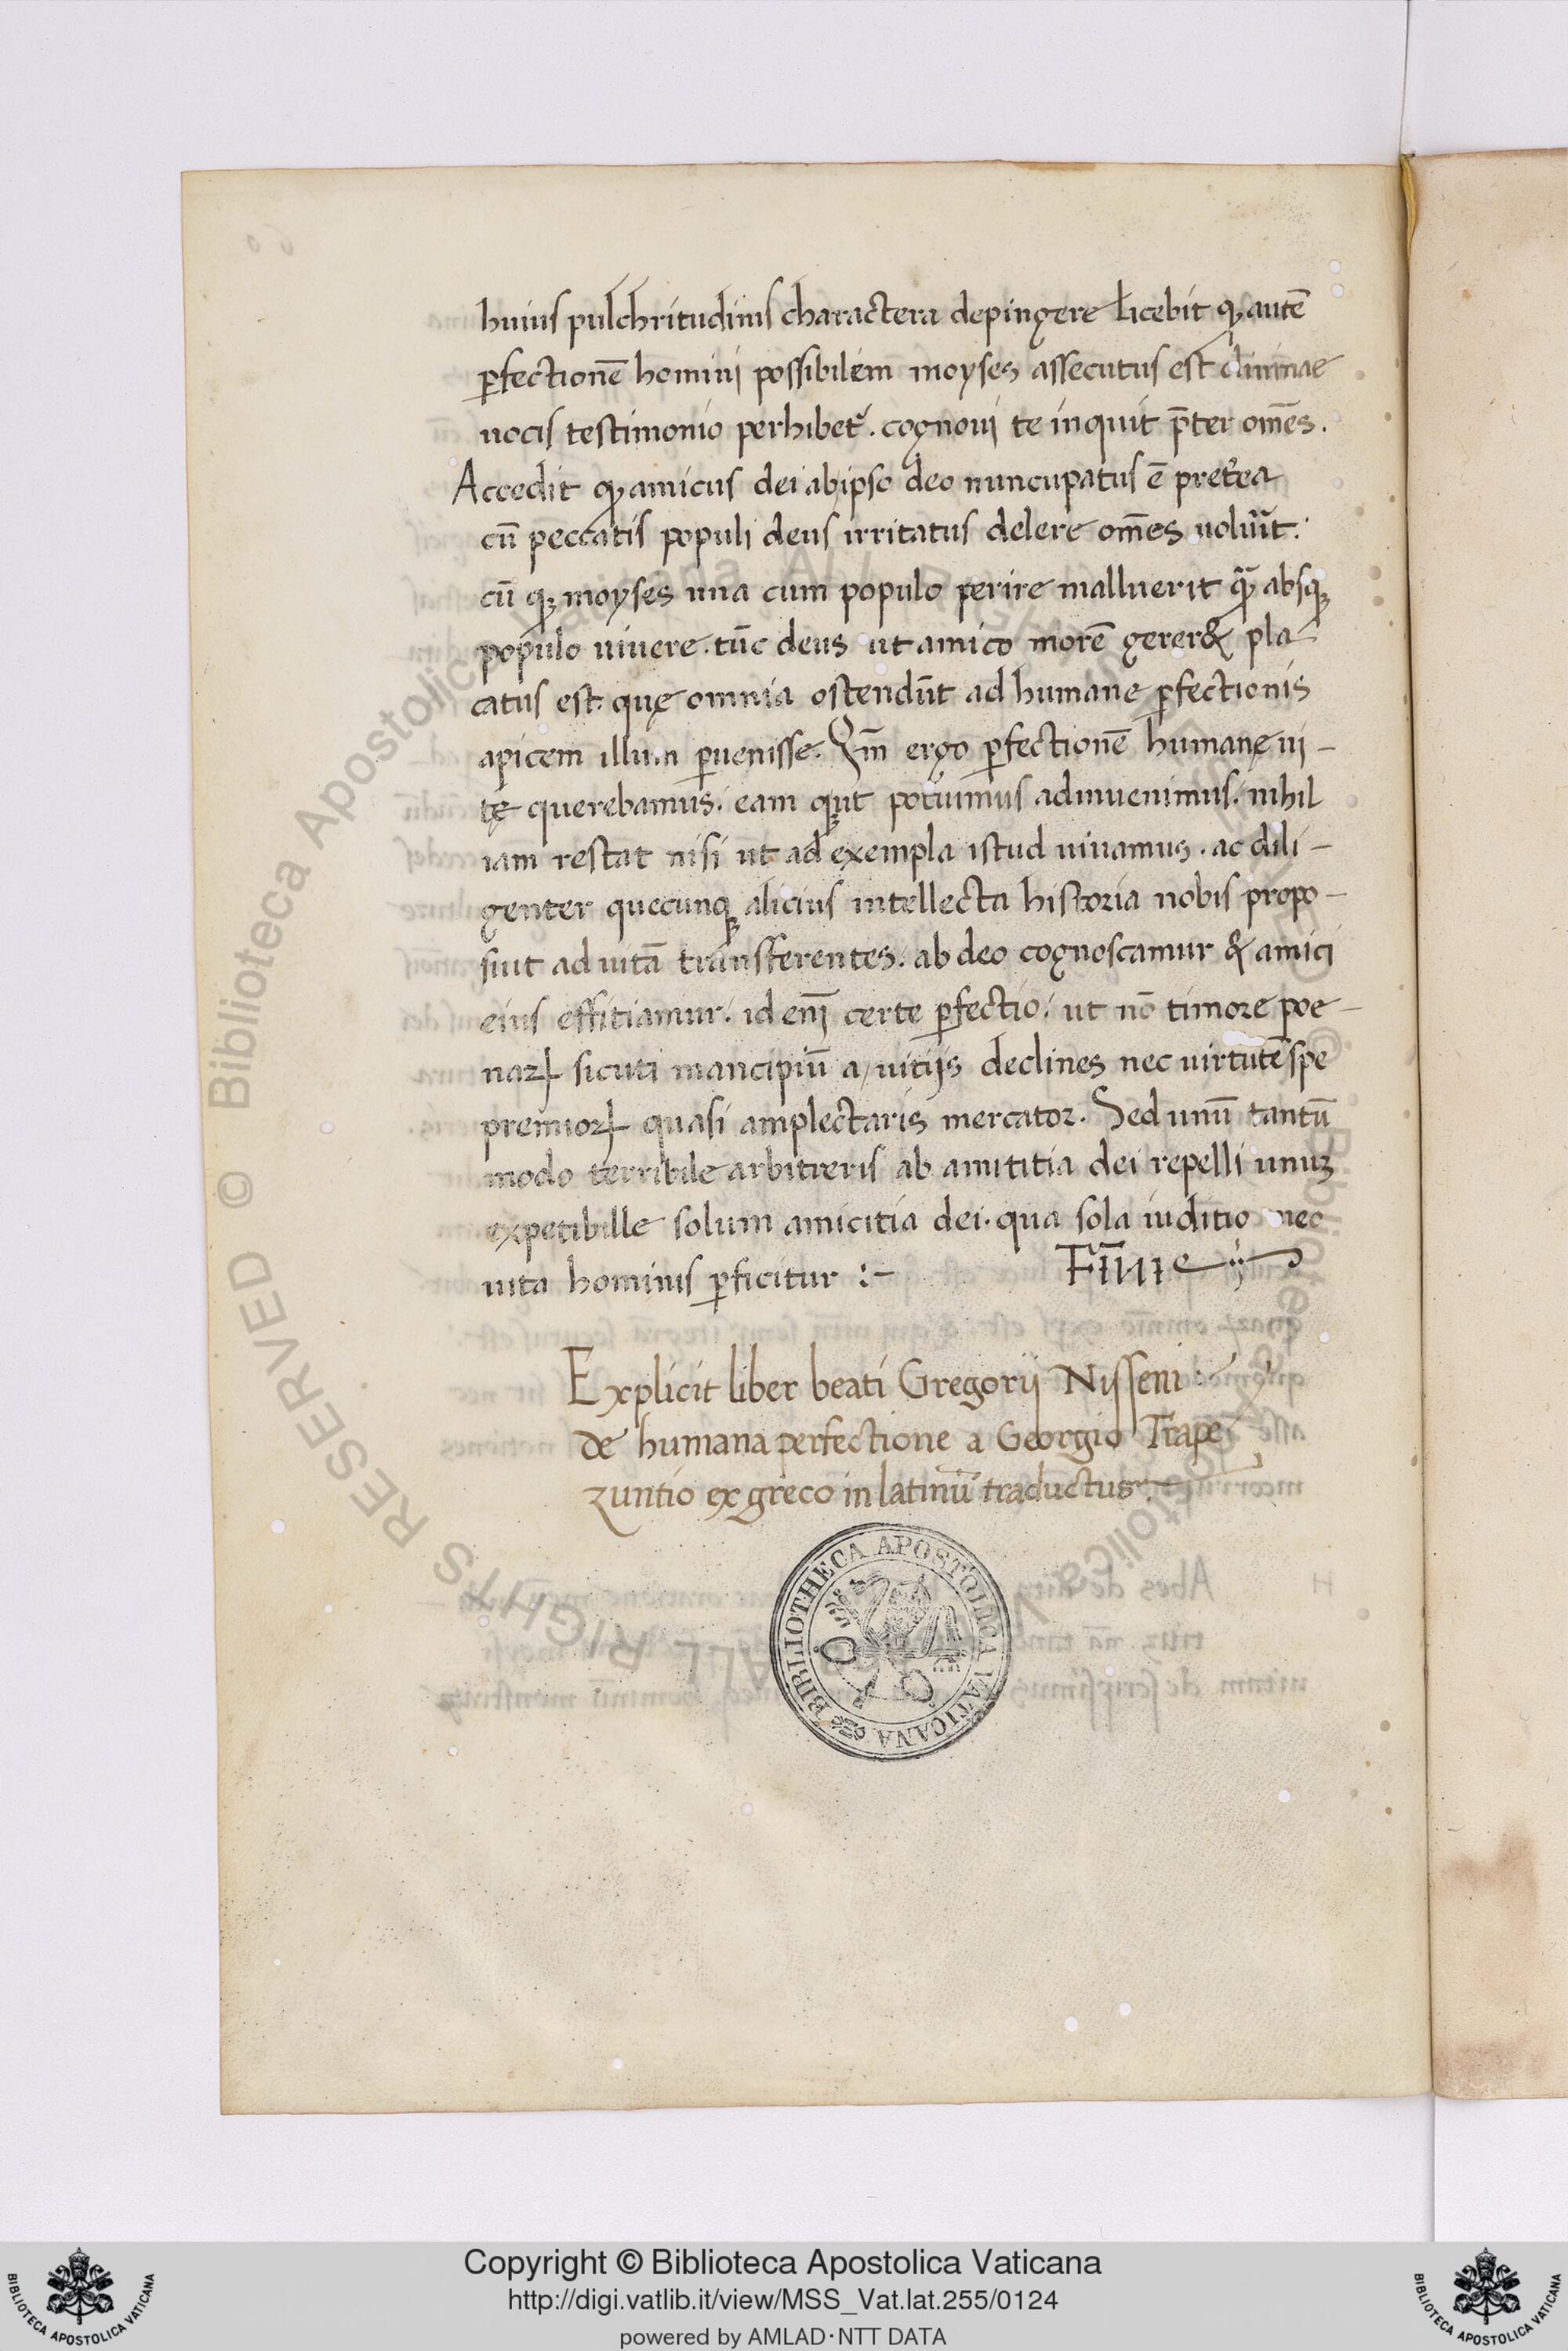 huius pulchritudinis charactera depingere licebit qꝫ autē
ꝑfectionē homini possibilem moyses assecutus est diuinae
uocis testimonio perhibet᷑. cognoui te inquit p̄ter om̄es.
Accedit qꝫ amicus dei ab ipso deo nuncupatus ē pret̾ea
cū peccatis populi deus irritatus delere om̄es uoluit.
cū qꝫ moyses una cum populo perire malluerit qꝫ̄ absqꝫ
populo uiuere. tūc deus ut amico morē gerer& pla-
catus est. quę omnia ostendūt ad humane ꝑfectionis
apicem illum ꝑuenisse. Qm̄ ergo ꝑfectionē humanę ui-
tę querebamus. eam qꝫut potuimus adinuenimus. nihil
iam restat nisi ut ad exempla istud uiuamus. ac dili-
genter quecunqꝫ alicius intellecta historia nobis propo-
suit ad uitā transferentes. ab deo cognoscamur & amici
eius effitiamur. id eni̅ certe ꝑfectio. ut nō timore poe-
naꝝ sicuti mancipiū a uitijs declines nec virtutē spe
premioꝝ quasi amplectaris mercator. Sed unū tantū
modo terribile arbitreris ab amititia dei repelli unuꝫ
expetibille solum amicitia dei. qua sola iuditio meo
uita hominis ꝑficitur :-
Finis
Explicit liber beati Gregorij Nisseni
de humana perfectione a Georgio Trape
zuntio ex greco in latinū traductus
BIBLIOTHECA APOSTOLICA VATICANA
© Biblioteca Apostolica Vaticana ALL RIGHTS RESERVED
Copyright © Biblioteca Apostolica Vaticana
http://digi.vatlib.it/view/MSS_Vat.lat.255/0124
powered by AMLAD·NTT DATA
BIBLIOTECA APOSTOLICA VATICANA
BIBLIOTECA APOSTOLICA VATICANA